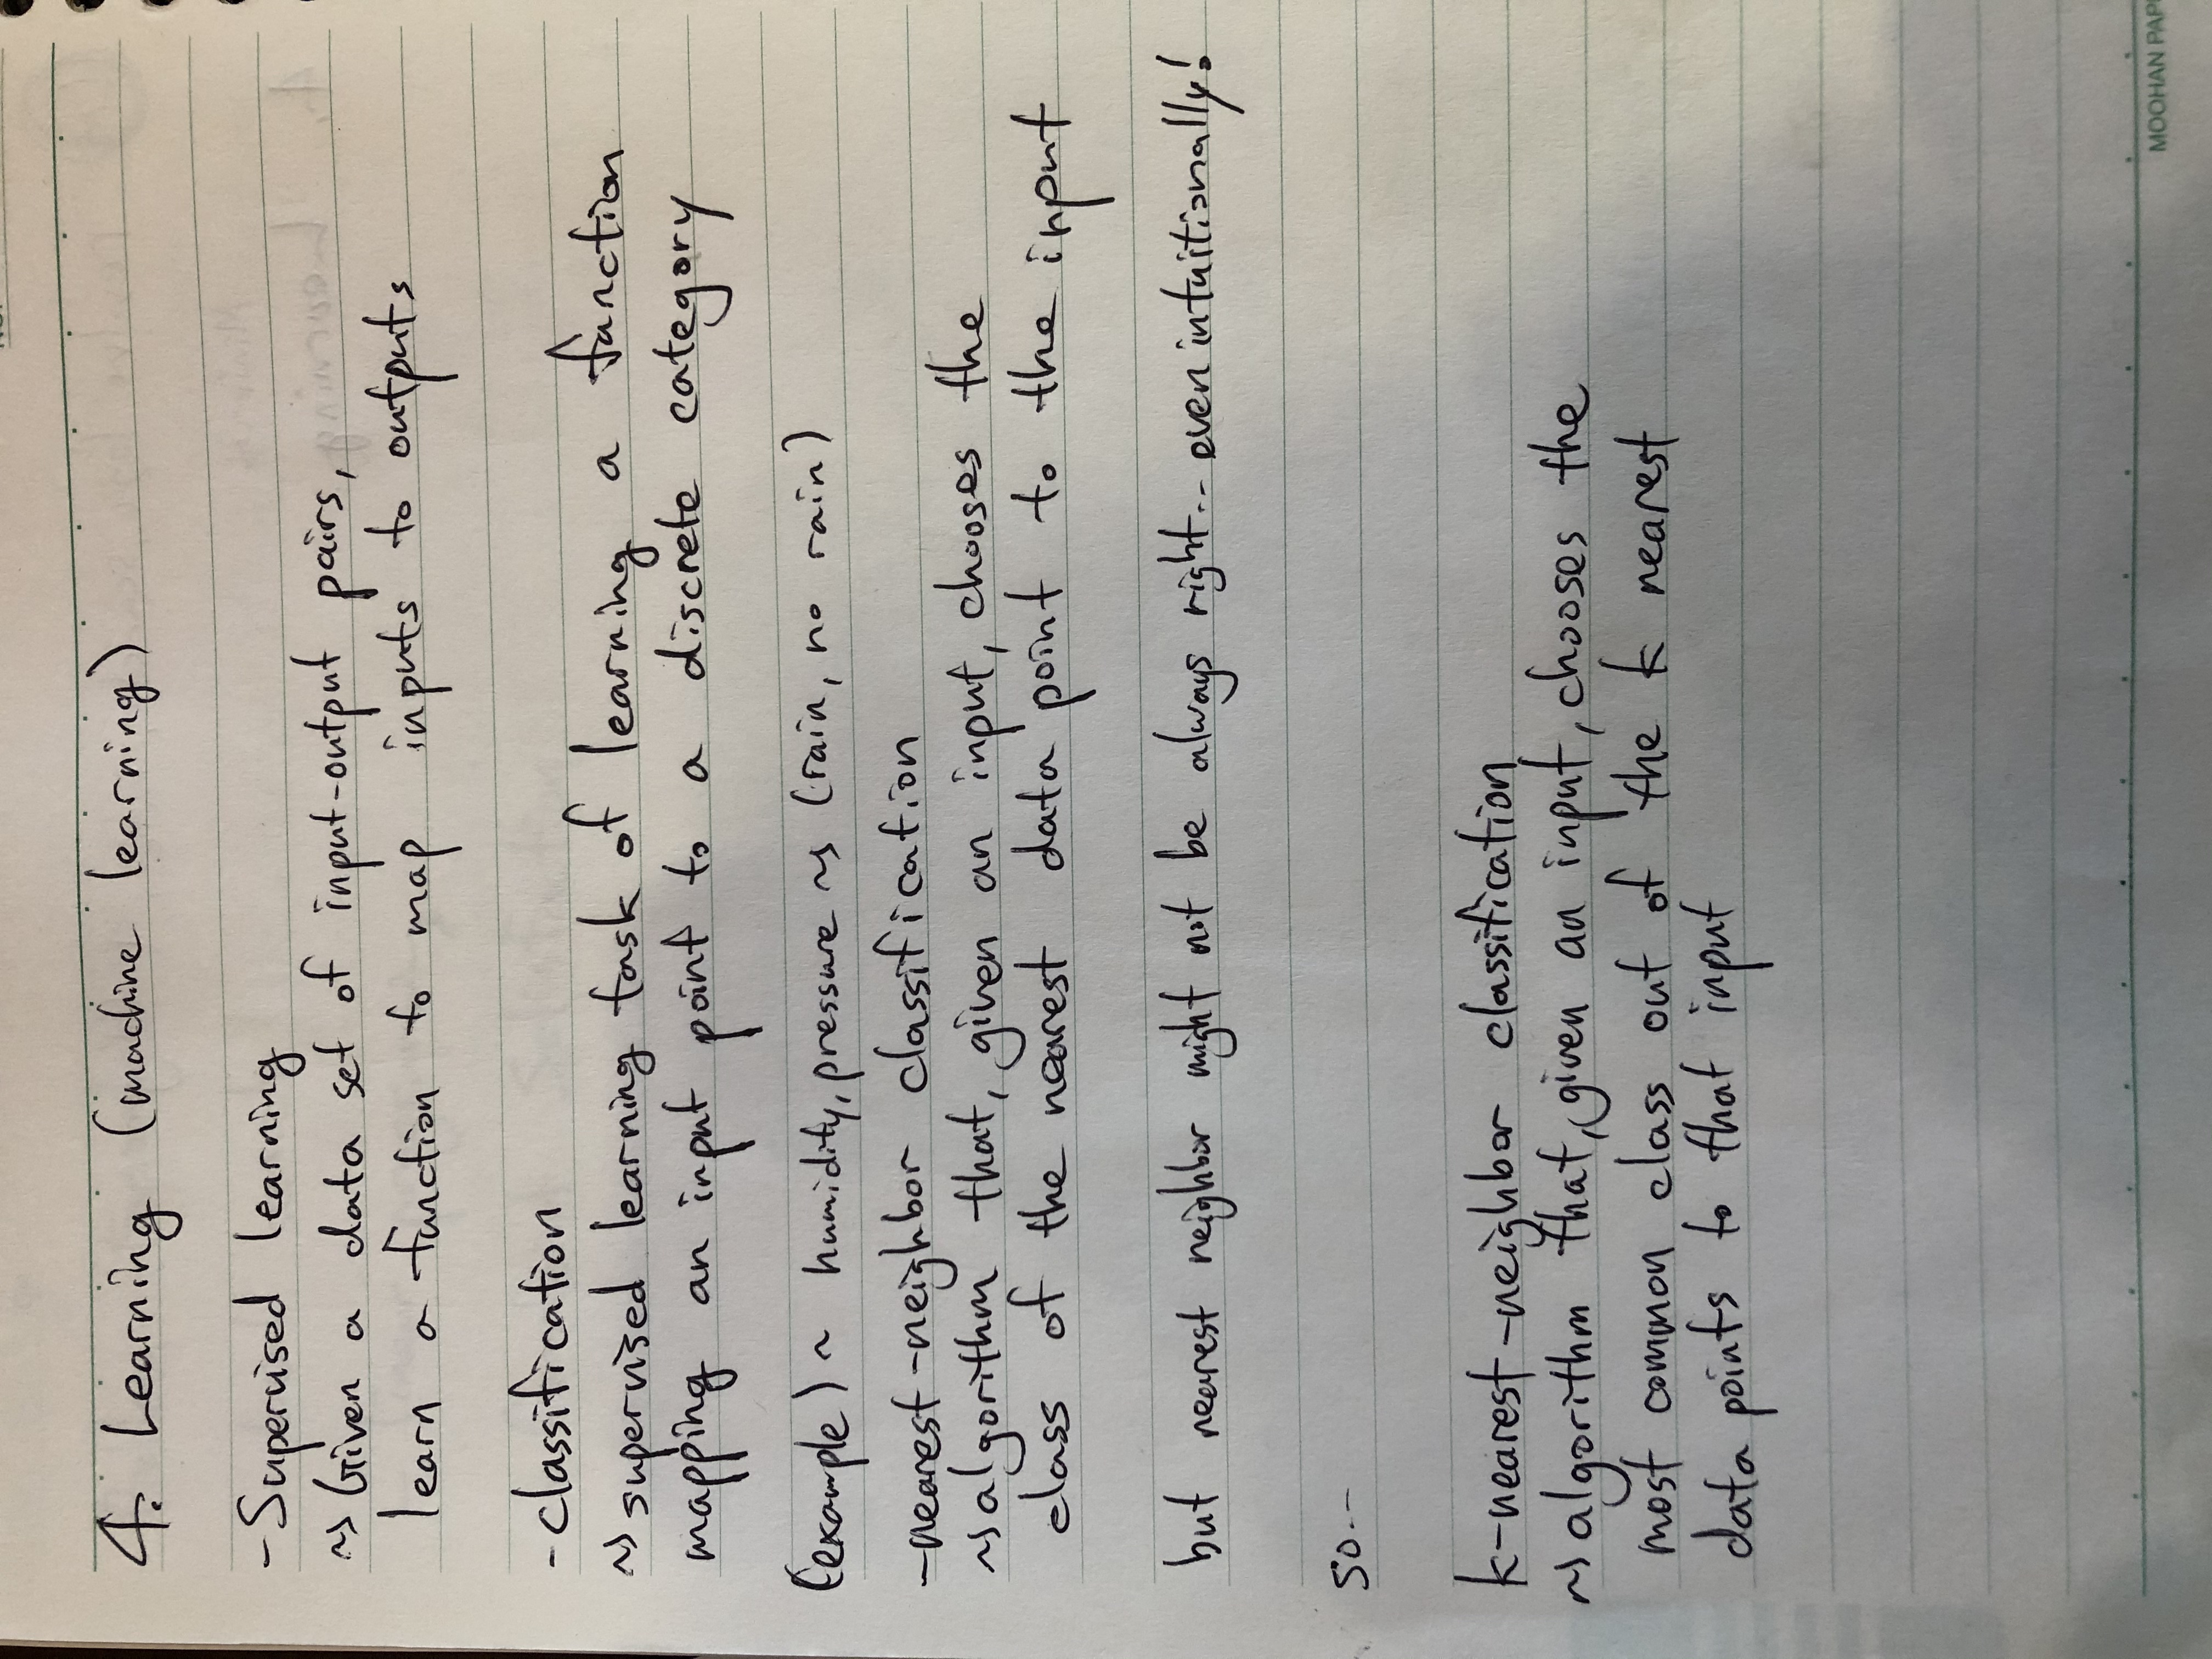 4. Learning (machine learning)
-Supervised learning
~> Given a data set of input-output pairs,
learn a function to map inputs to outputs
-classification
~> supervised learning task of learning a function
mapping an input point to a discrete category
(example) ~ humidity, pressure ~> (rain, no rain)
-nearest-neighbor classification
~> algorithm that, given an input, chooses the
class of the nearest data point to the input
but nearest neighbor might not be always right... even intuitionally!
so...
k-nearest-neighbor classification
~> algorithm that, given an input, chooses the
most common class out of the k nearest
data points to that input
MOOHAN